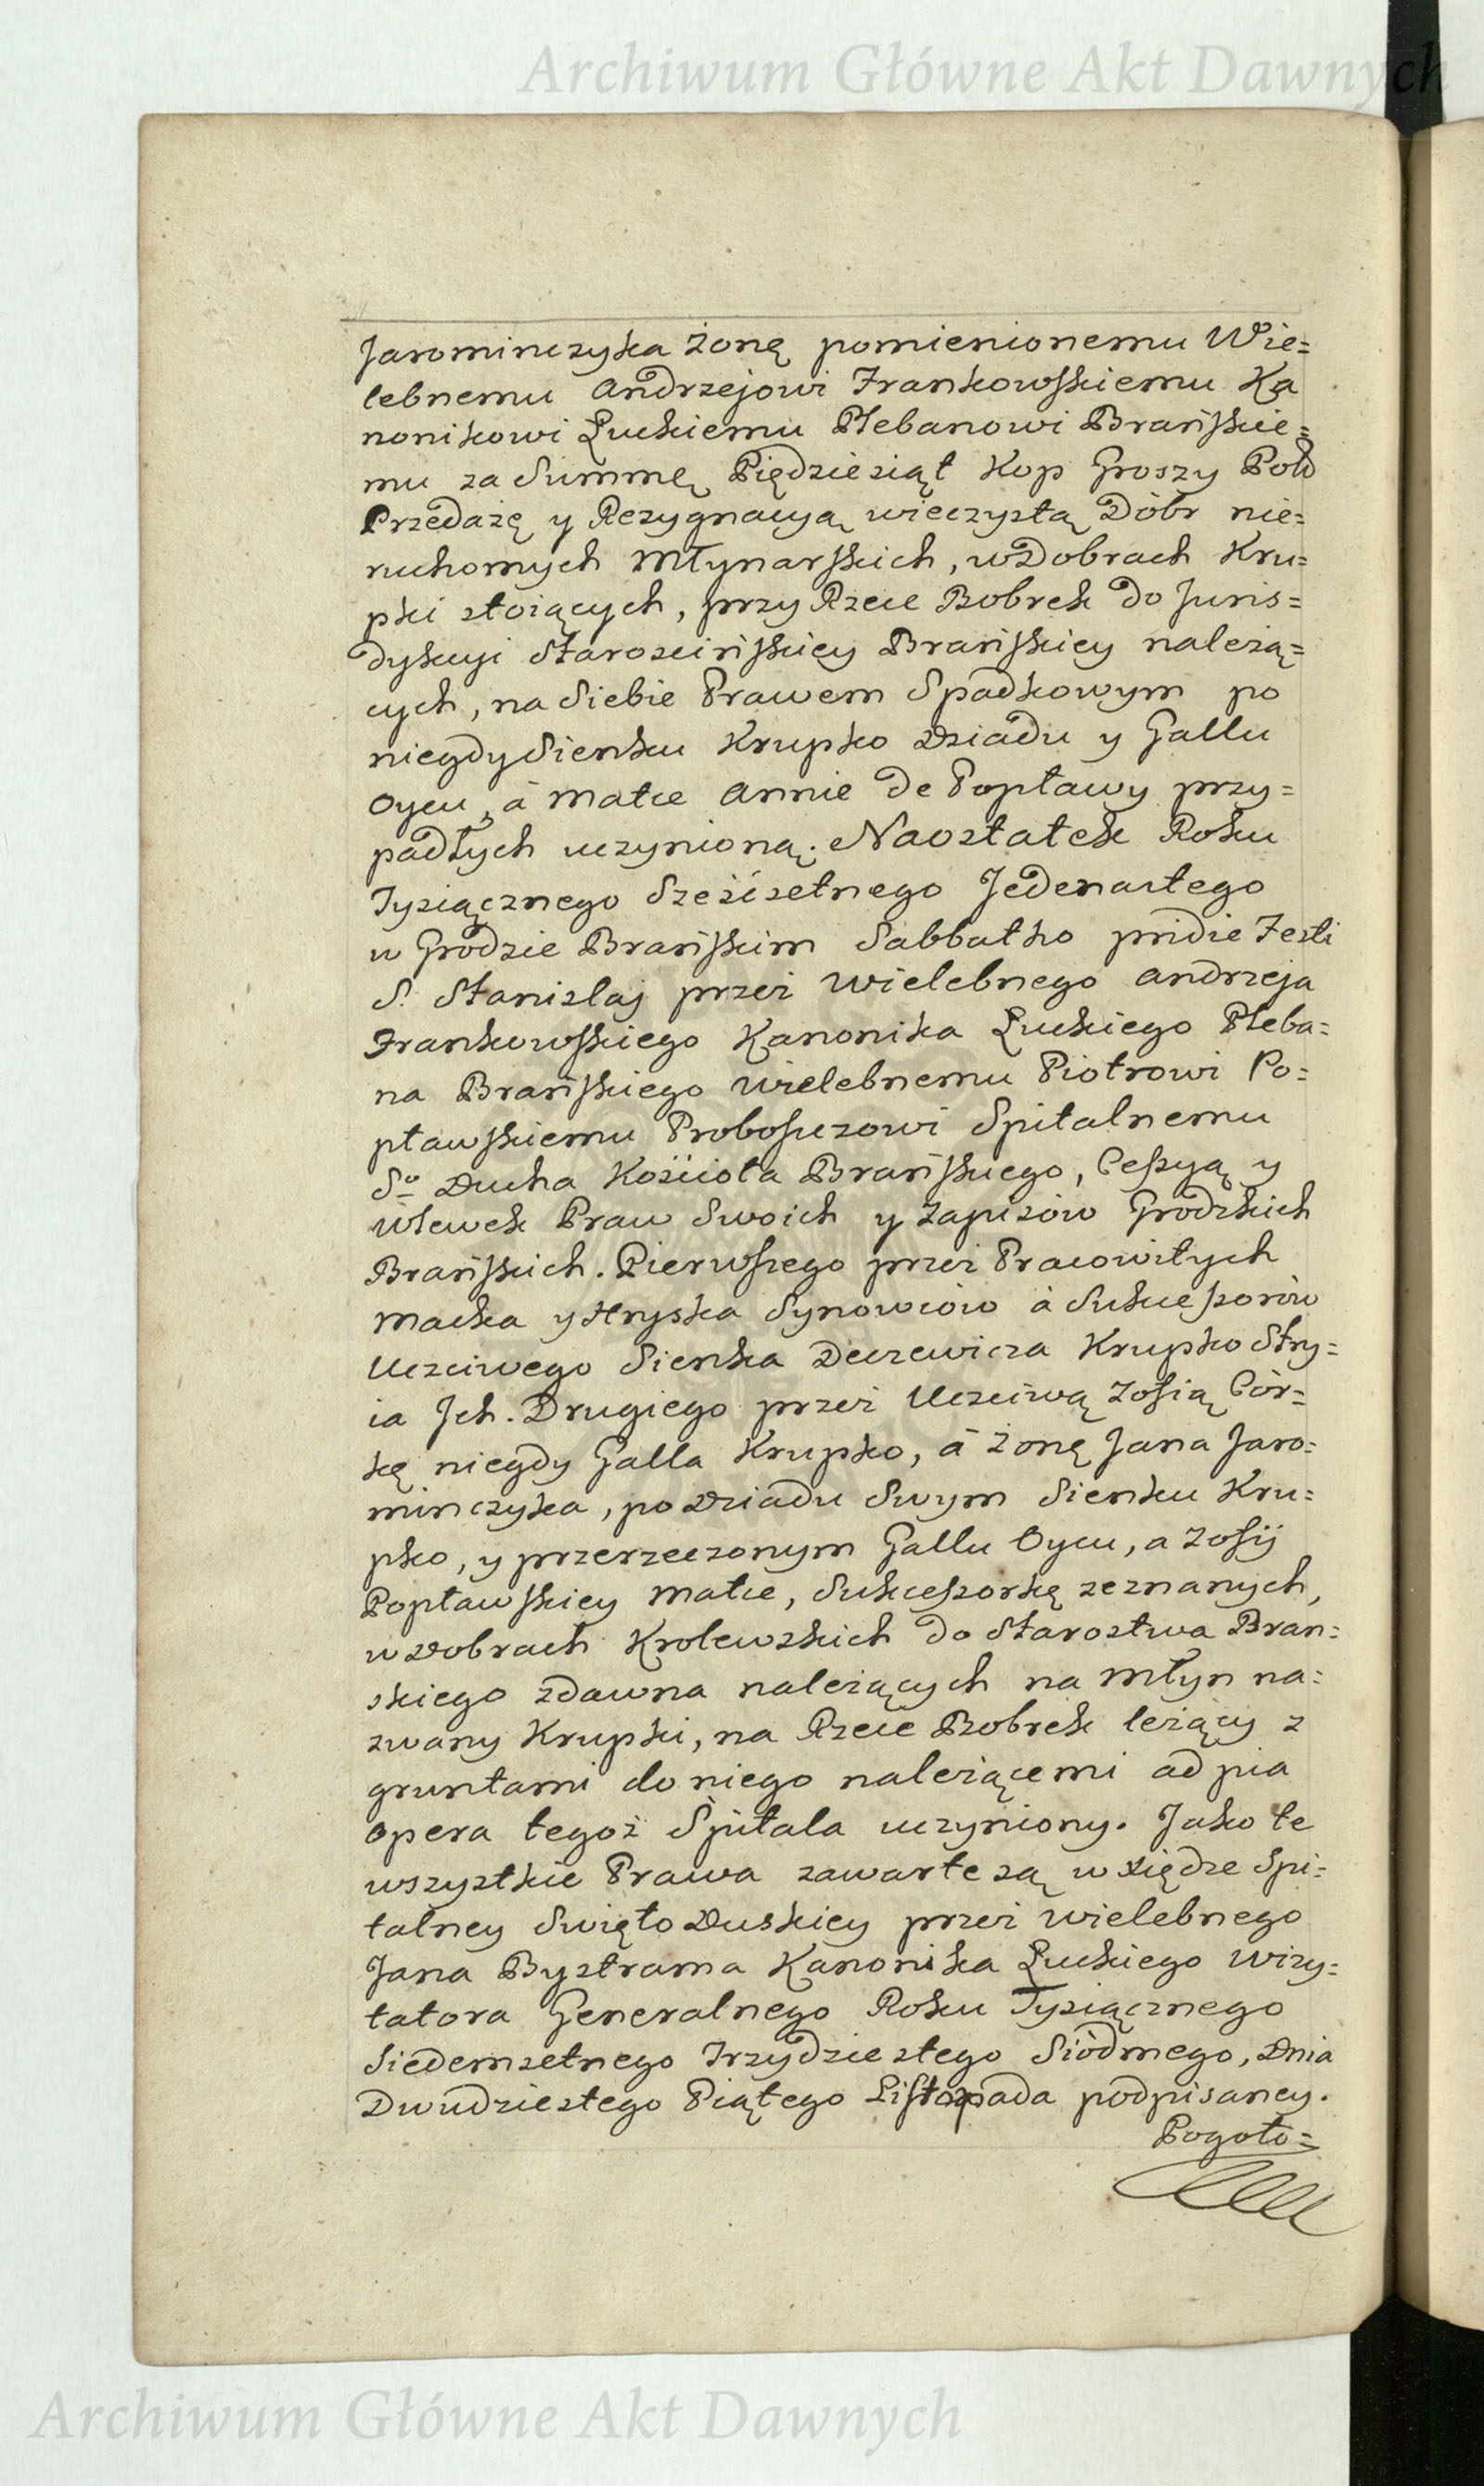 Archiwum Główne Akt Dawnych
Jarominczyka żonę pomienionemu Wie=
lebnemu Andrzejowi Frankowskiemu Ka
nonikowi Łuckiemu Plebanowi Brańskie=
mu za Summę Piędziesiąt Kop Groszy Pols
Przedażę y Rezygnacyą wieczystą Dóbr nie=
ruchomych Młynarskich, w Dobrach Kru=
pki stoiących, przy Rzece Bobrek do Juris=
dykcyi Starościńskiey Brańskiey należą=
cych, na Siebie Prawem Spadkowym po
niegdy Sienku Krupko Dziadu y Gallu
Oycu, á Matce Annie de Popławy przy=
padłych uczynioną. Naostatek Roku
Tysiącznego Sześćsetnego Jedenastego
w Grodzie Brańskim Sabbatho pridie Festi
S. Stanislaj przez Wielebnego Andrzeja
Frankowskiego Kanonika Łuckiego Pleba=
na Brańskiego Wielebnemu Piotrowi Po=
pławskiemu Proboszczowi Szpitalnemu
Sgo Ducha Kościoła Brańskiego, Cessyą y
wlewek Praw Swoich y Zapisów Grodzkich
Brańskich. Pierwszego przez Pracowitych
Macka y Hryska Synowców á Sukcessorów
Uczciwego Sienka Deczewicza Krupko Stry=
ia Jch. Drugiego przez Uczciwą Zofią Cór=
kę niegdy Galla Krupko, á żonę Jana Jaro=
minczyka, po Dziadu Swym Sienku Kru=
pko, y przerzeczonym Gallu Oycu, a Zofij
Popławskiey Matce, Sukcessorkę zeznanych,
w Dobrach Krolewskich do Starostwa Bran=
skiego zdawna należących na Młyn na=
zwany Krupki, na Rzece Bobrek leżący z
gruntami do niego należącemi ad pia
opera tegoż Szpitala uczyniony. Jako te
wszystkie Prawa zawarte są w Xiędze Szpi=
talney Swięto Duskiey przez Wielebnego
Jana Bystrama Kanonika Łuckiego Wizy=
tatora Generalnego Roku Tysiącznego
Siedemsetnego Trzydziestego Siódmego, Dnia
Dwudziestego Piątego Listopada podpisaney.
Pogoto=
Archiwum Główne Akt Dawnych